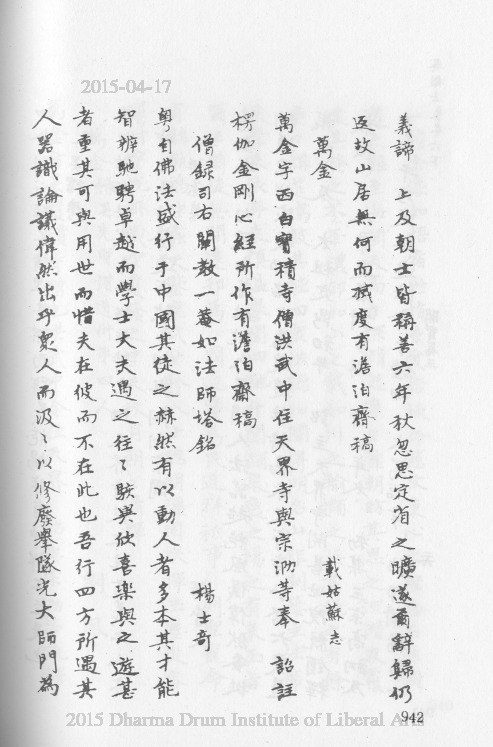 2015-04-17
義諦　上及朝士皆稱善六年秋忽思定省之曠遂爾辭歸仍
返故山居無何而滅度有澹泊齋稿　載姑蘇志
萬金
萬金字西白寶積寺僧洪武中住天界寺與宗泐等奉　詔註
楞伽金剛心經所作有澹泊齋稿
僧録司右闡教一菴如法師塔銘　楊士奇
粤自佛法盛行于中國其徒之赫然有以動人者多本其才能
智辨馳騁卓越而學士大夫遇之往〻駭異欣喜樂與之遊甚
者重其可與用世而惜夫在彼而不在此也吾行四方所遇其
人器識論議偉然出乎衆人而汲〻以修廢舉隊光大師門為
942
2015 Dharma Drum Institute of Liberal Arts